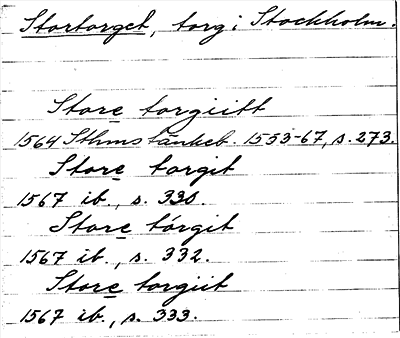 Stortorget, torg i Stockholm.
Store torgiitt
1564 Sthms tänkeb. 1553-67, s. 273.
Store torgit
1567 ib., s. 330.
Store tórgit
1567 ib., s. 332.
Store torgiit
1567 ib., s. 333.